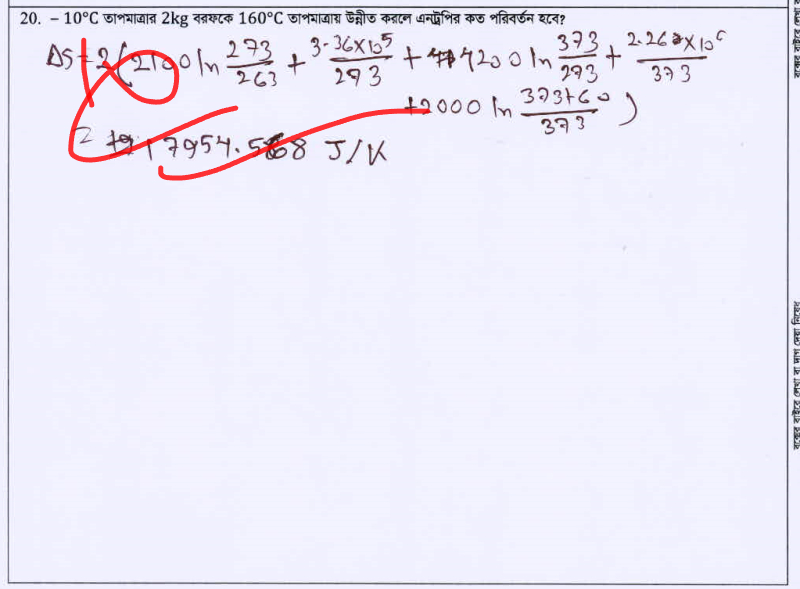 20. – 10°C তাপমাত্রার 2kg বরফকে 160°C তাপমাত্রায় উন্নীত করলে এনট্রপির কত পরিবর্তন হবে?
ΔS = 2 ( 2100 ln 273/263 + 3.36×10⁵/273 + 4200 ln 373/273 + 2.26×10⁶/373
+2000 ln 373+60/373 )
17954.568 J/K